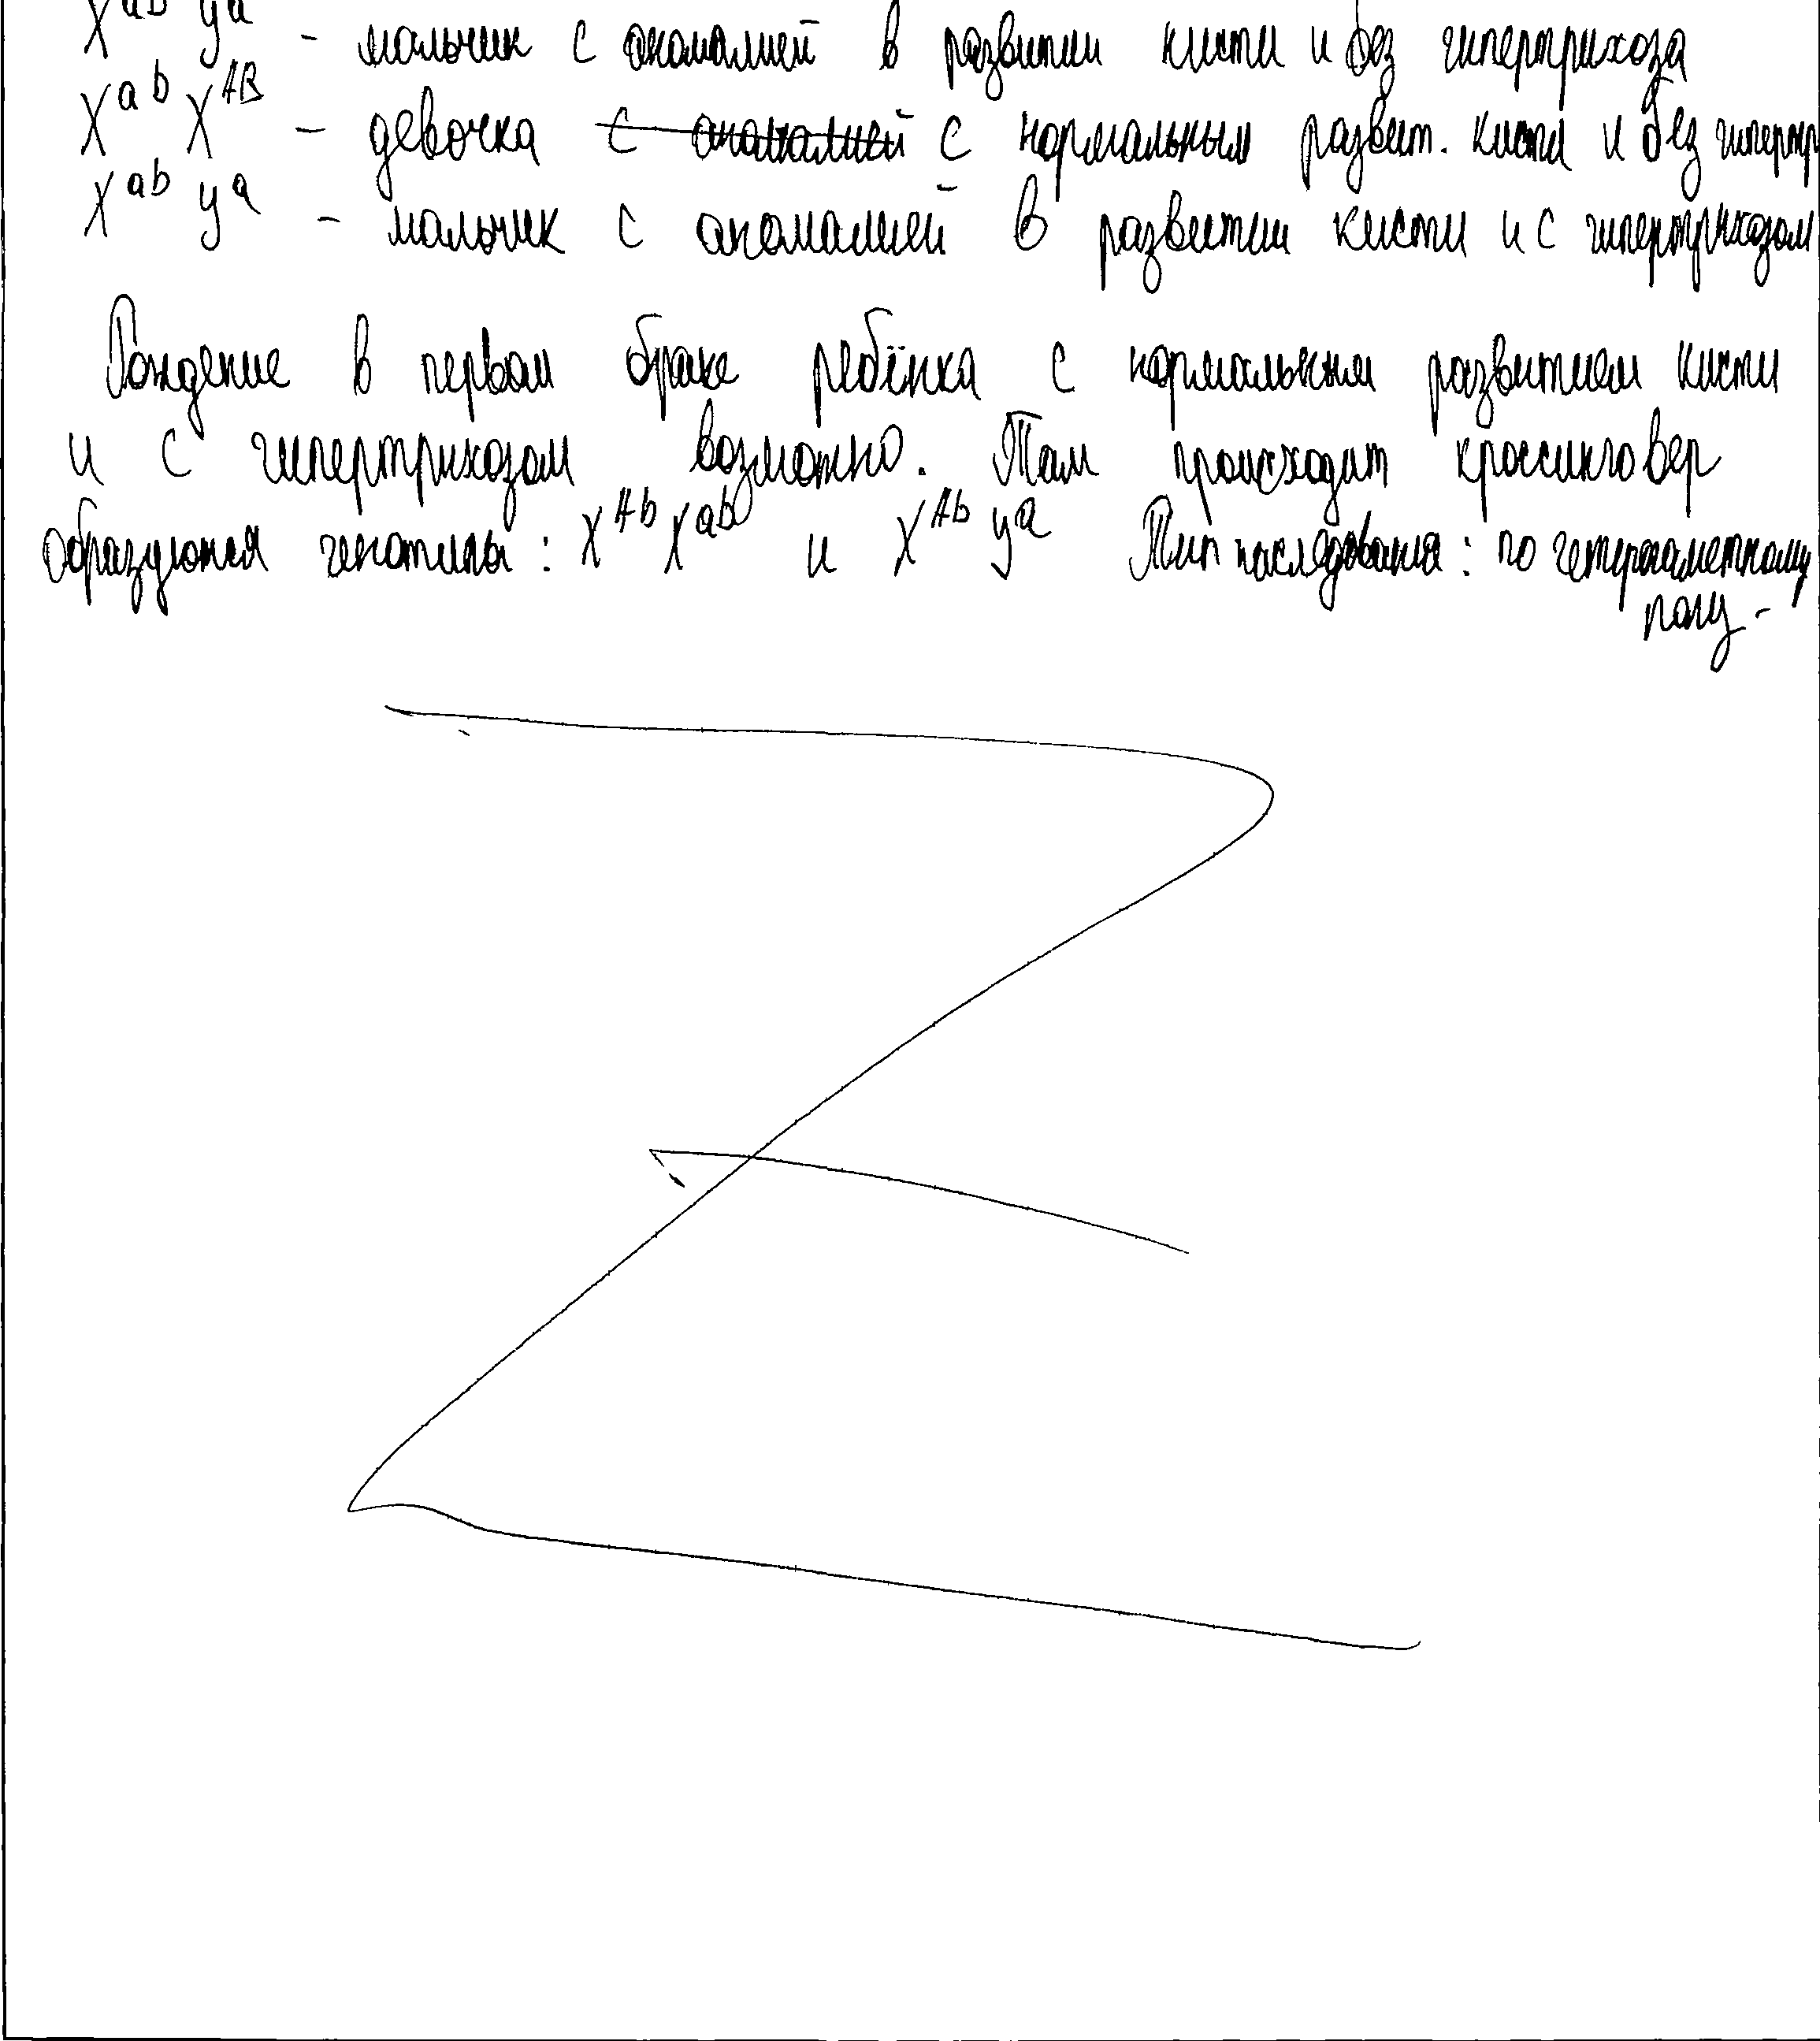 X^aB y^a - мальчик с аномалией в развитии кисти и без гипертрихоза
X^ab X^AB - девочка с аномалией с нормальным развит. кисти и без гипертр
X^ab y^a - мальчик с аномалией в развитии кисти и с гипертрихозом
Рождение в первом браке ребёнка с нормальным развитием кисти
и с гипертрихозом возможно. Там происходит кроссинговер
образуются генотипы: X^Ab X^ab и X^Ab y^a Тип наследования: по гетерогаметному
полу.